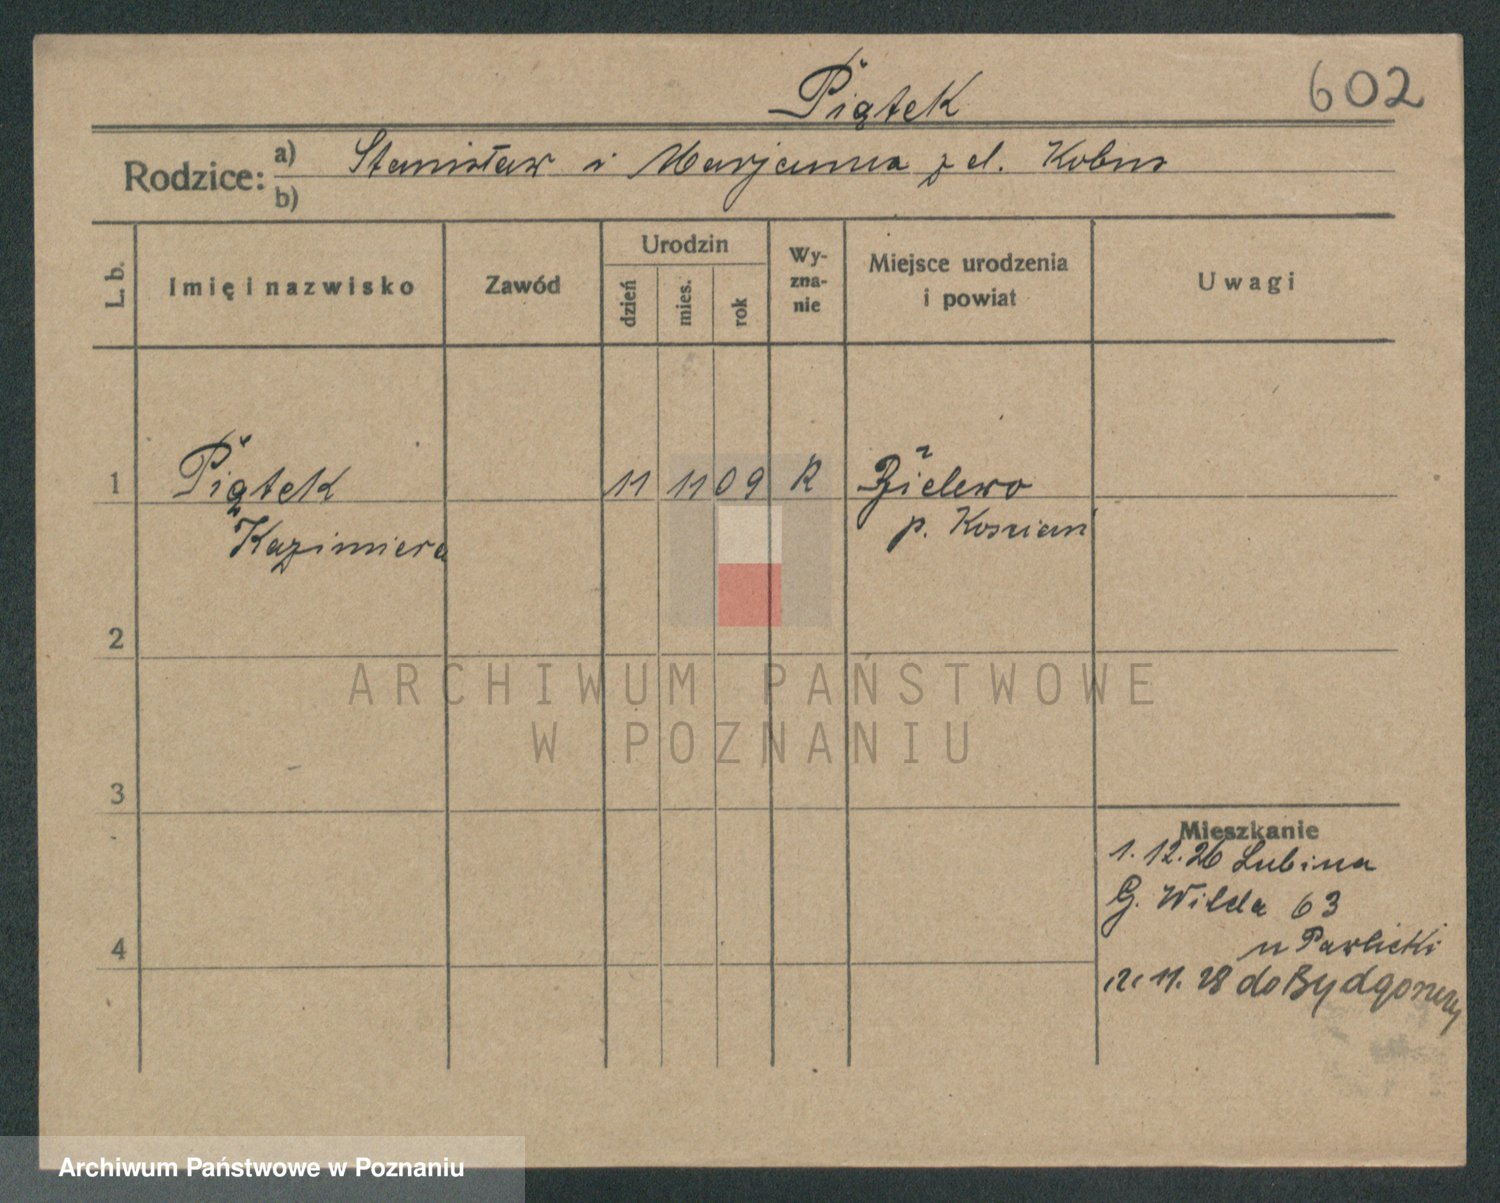 Piątek
602
Rodzice: a) Stanisław i Marjanna z d. Kobus
b)
L. b.
Imię i nazwisko
Zawód
Urodzin
dzień
mies.
rok
Wy-
zna-
nie
Miejsce urodzenia
i powiat
Uwagi
1 Piątek 11 11 09 R
Kazimiera p. Kościan
2
ARCHIWUM PAŃSTWOWE
W POZNANIU
3
Mieszkanie
1. 12. 26 Lubina
G. Wilda 63
u Pawlicki
11. 28 do Bydgoszczy
4
Archiwum Państwowe w Poznaniu